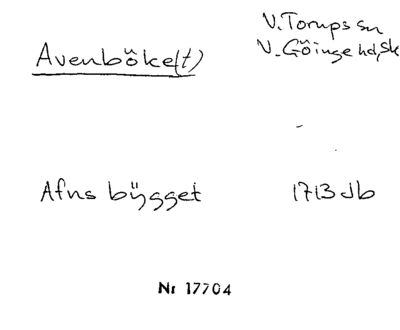 Avenböke(t)
V. Torups sn
V. Göinge hd, Sk
Afns bÿgget
1713 Jb
Nr 17704